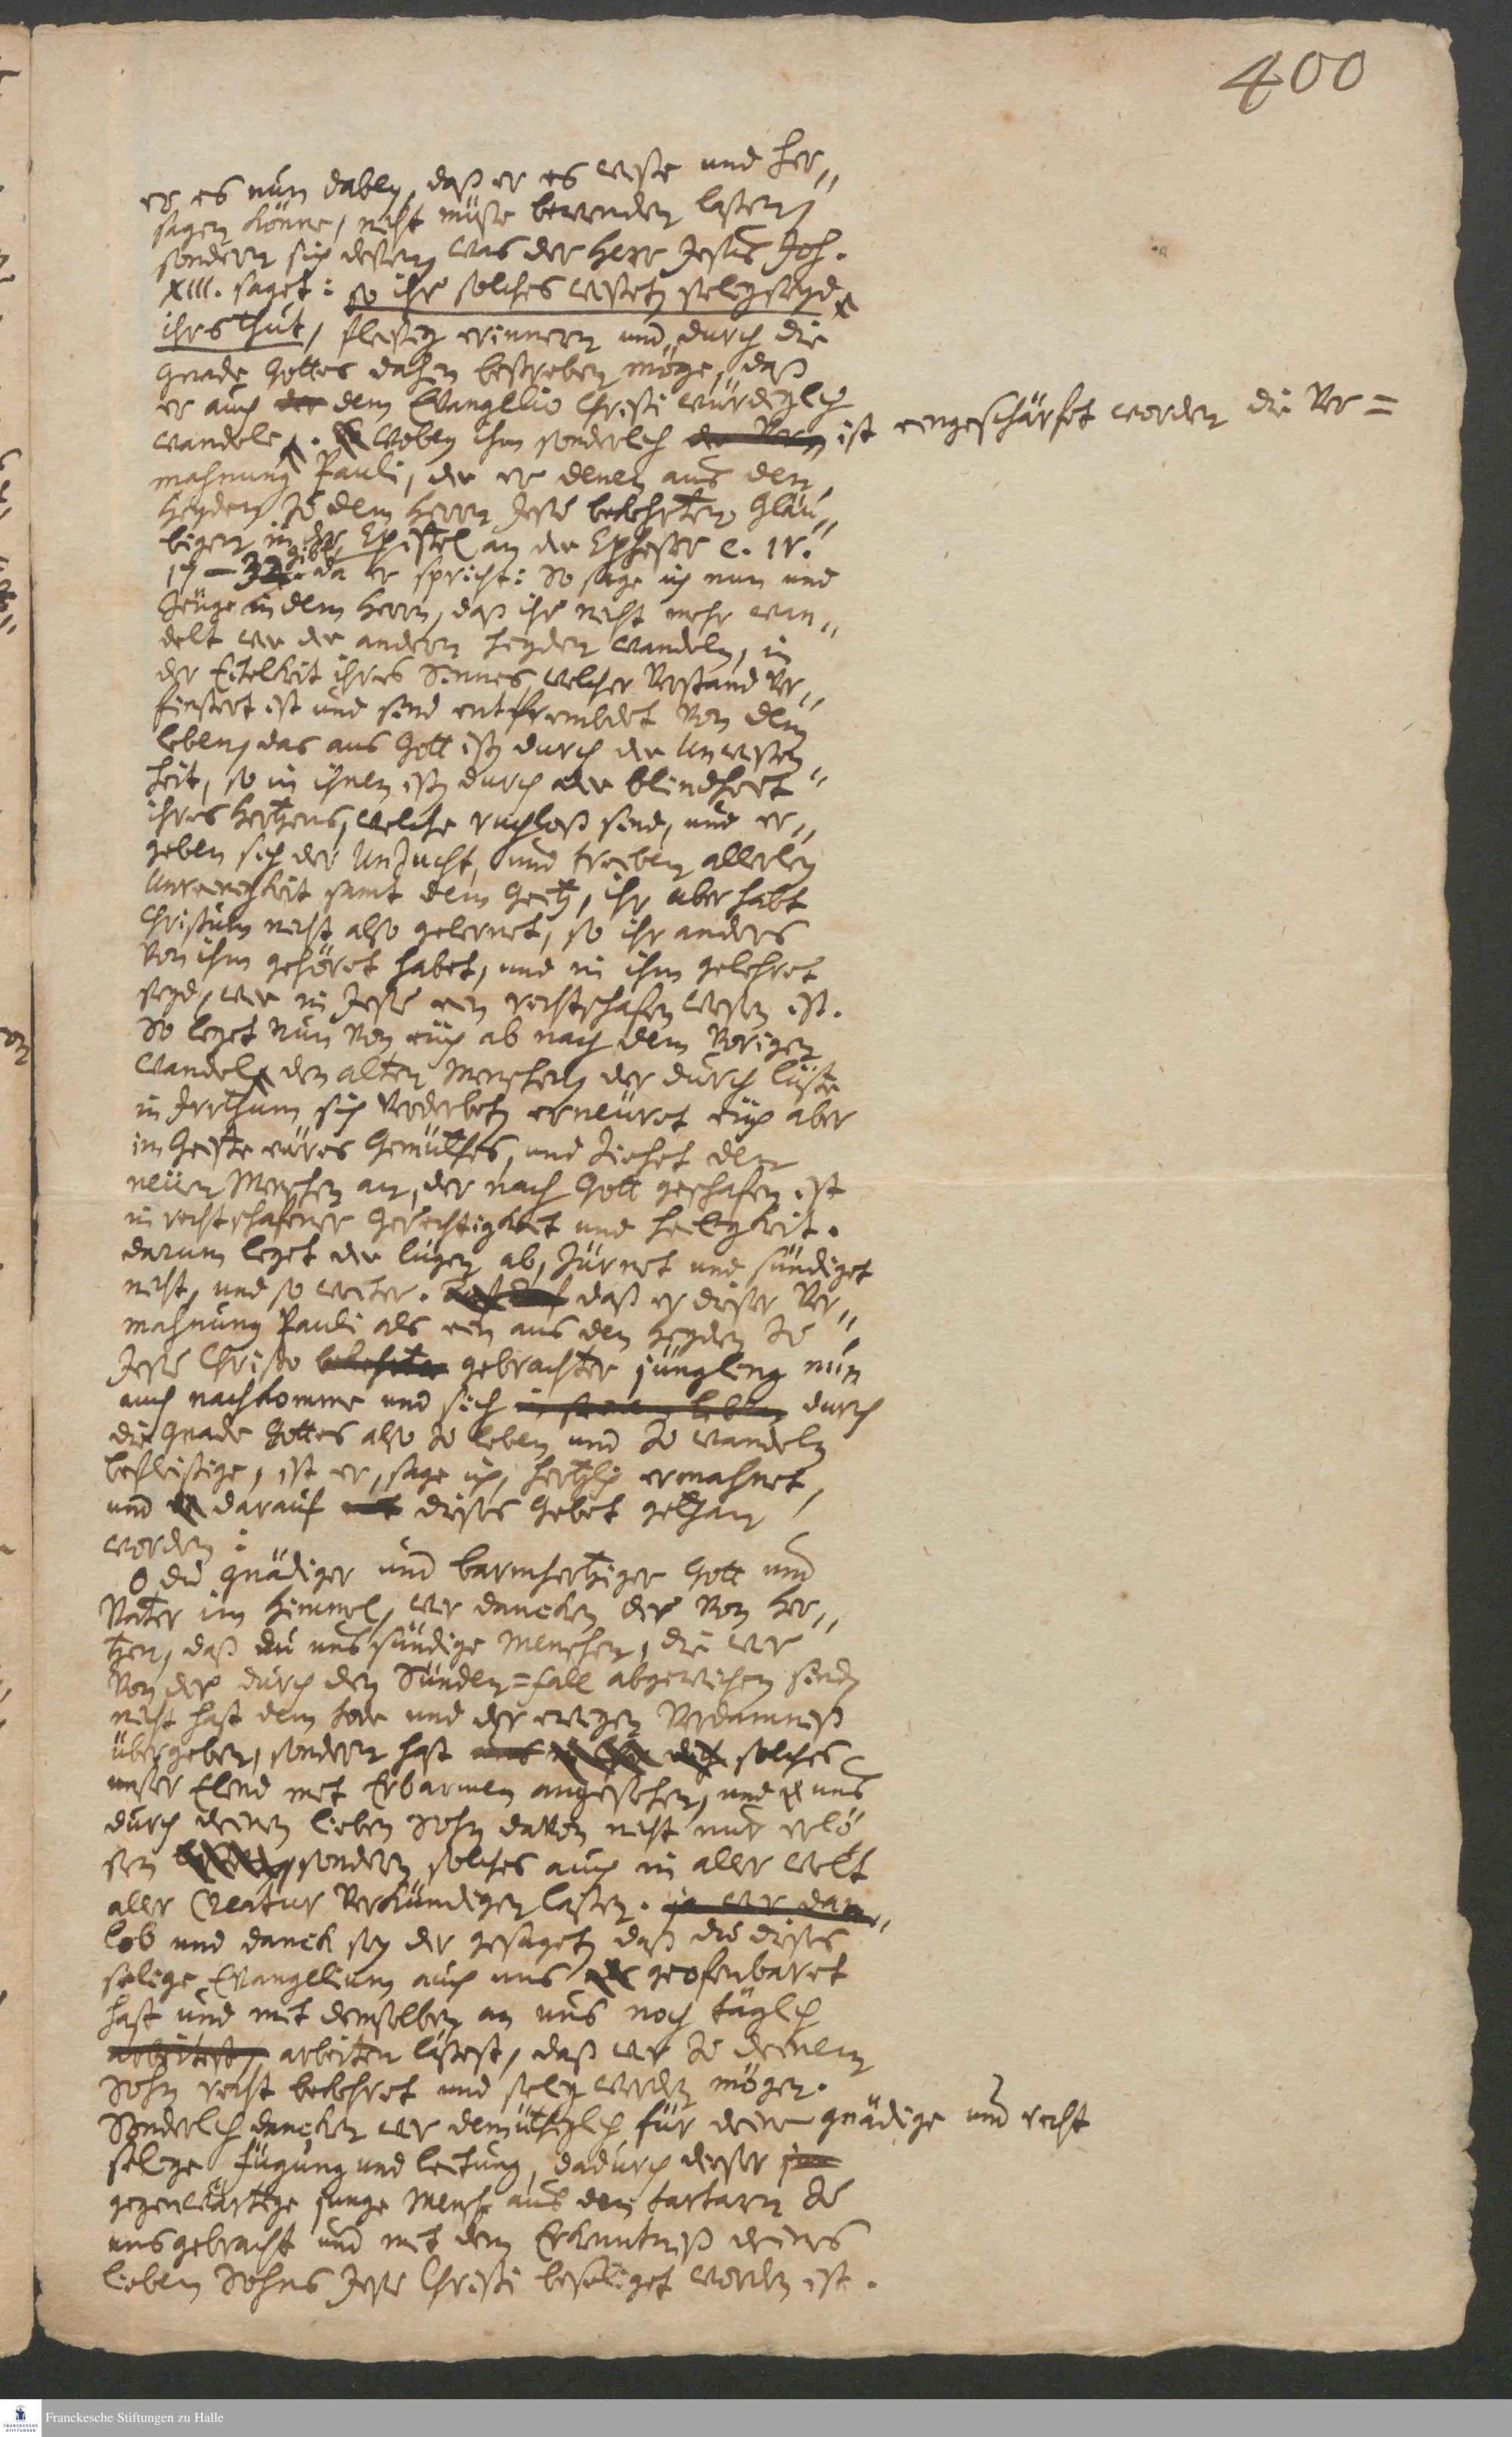 400
er es nun dabey, daß er es wiße und her„
sagen könne, nicht müße bewenden laßen,
sondern sich deßen, was der Herr Jesus Joh.
XIII. saget: so ihr solches wißet, selig seyd
ihrs thut, fleißig erinnern und durch die
Gnade Gottes dahin bestreben möge, daß
er auch der dem Evangelio Christi würdiglich
wandele. Wobey ihm sonderlich ist eingeschärfet worden die Ver=
mahnung Pauli, die er denen aus den
Heyden zu dem Herrn Jesu bekehrten Gläu„
bigen in der Epistel an die Epheser c. IV.
17–32. gibt, da er spricht: So sage ich nun und
zeuge in dem Herrn, daß ihr nicht mehr wan„
delt wie die andern Heyden wandeln, in
der Eitelkeit ihres Sinnes, welcher Verstand ver„
finstert ist und sind entfrembdet von dem
Leben, das aus Gott ist, durch die Unwißen„
heit, so in ihnen ist, durch die Blindheit
ihres Hertzens, welche ruchloß sind, und er„
geben sich der Unzucht, und treiben allerley
Unreinigkeit samt dem Geitz, ihr aber habt
Christum nicht also gelernet, so ihr anders
von ihm gehöret habet, und in ihm gelehret
seyd, wie in Jesu ein rechtschafen Wesen ist.
So leget nun von euch ab nach dem vorigen
Wandel den alten Menschen, der durch Lüste
in Irrthum sich verderbet, erneuret euch aber
im Geiste eures Gemüthes, und ziehet den
neuen Menschen an, der nach Gott geschafen ist
in rechtschafener Gerechtigkeit und Heiligkeit.
darum leget die Lügen ab, zürnet und sündiget
nicht, und so weiter. daß er dieser Ver„
mahnung Pauli als ein aus den Heyden zu
Jesu Christo bekehrter gebrachter Jüngling nun
auch nachkomme und sich in seinem Leben durch
die Gnade Gottes also zu leben und zu wandeln
befleißige, ist er, sage ich, hertzlich ermahnet,
und darauf mit dieses Gebet gethan
worden:
O du gnädiger und barmhertziger Gott und
Vater im Himmel, wir dancken dir von Her„
tzen, daß du uns sündige Menschen, die wir
von dir durch den Sünden=fall abgewichen sind,
nicht hast dem Tode und der ewigen Verdamniß
übergeben, sondern hast uns solches
unser Elend mit Erbarmen angesehen, und uns
durch deinen lieben Sohn davon nicht nur erlö
sen sondern solches auch in aller Welt
aller Creatur verkündigen laßen. ja wir dan„
Lob und Danck sey dir gesaget, daß du dieses
selige Evangelium auch uns geofenbaret
hast und mit demselben an uns noch täglich
arbeitest, arbeiten läßest, daß wir zu deinem
Sohn recht bekehret und selig werden mögen.
Sonderlich dancken wir demüthiglich für deine gnädige und recht
selige Fügung und Leitung, dadurch dieser
gegenwärtige junge Mensch aus den Tartarn zu
uns gebracht und mit dem Erkenntniß deines
lieben Sohns Jesu Christi beseliget worden ist.
Franckesche Stiftungen zu Halle